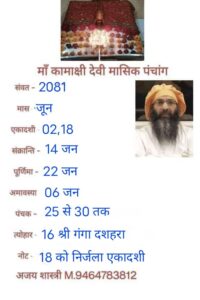 माँ कामाक्षी देवी मासिक पंचांग
संवत - 2081
मास - जून
एकादशी - 02,18
संक्रान्ति - 14 जन
पूर्णिमा - 22 जन
अमावस्या 06 जन
पंचक - 25 से 30 तक
त्योहार - 16 श्री गंगा दशहरा
नोट - 18 को निर्जला एकादशी
अजय शास्त्री M.9464783812